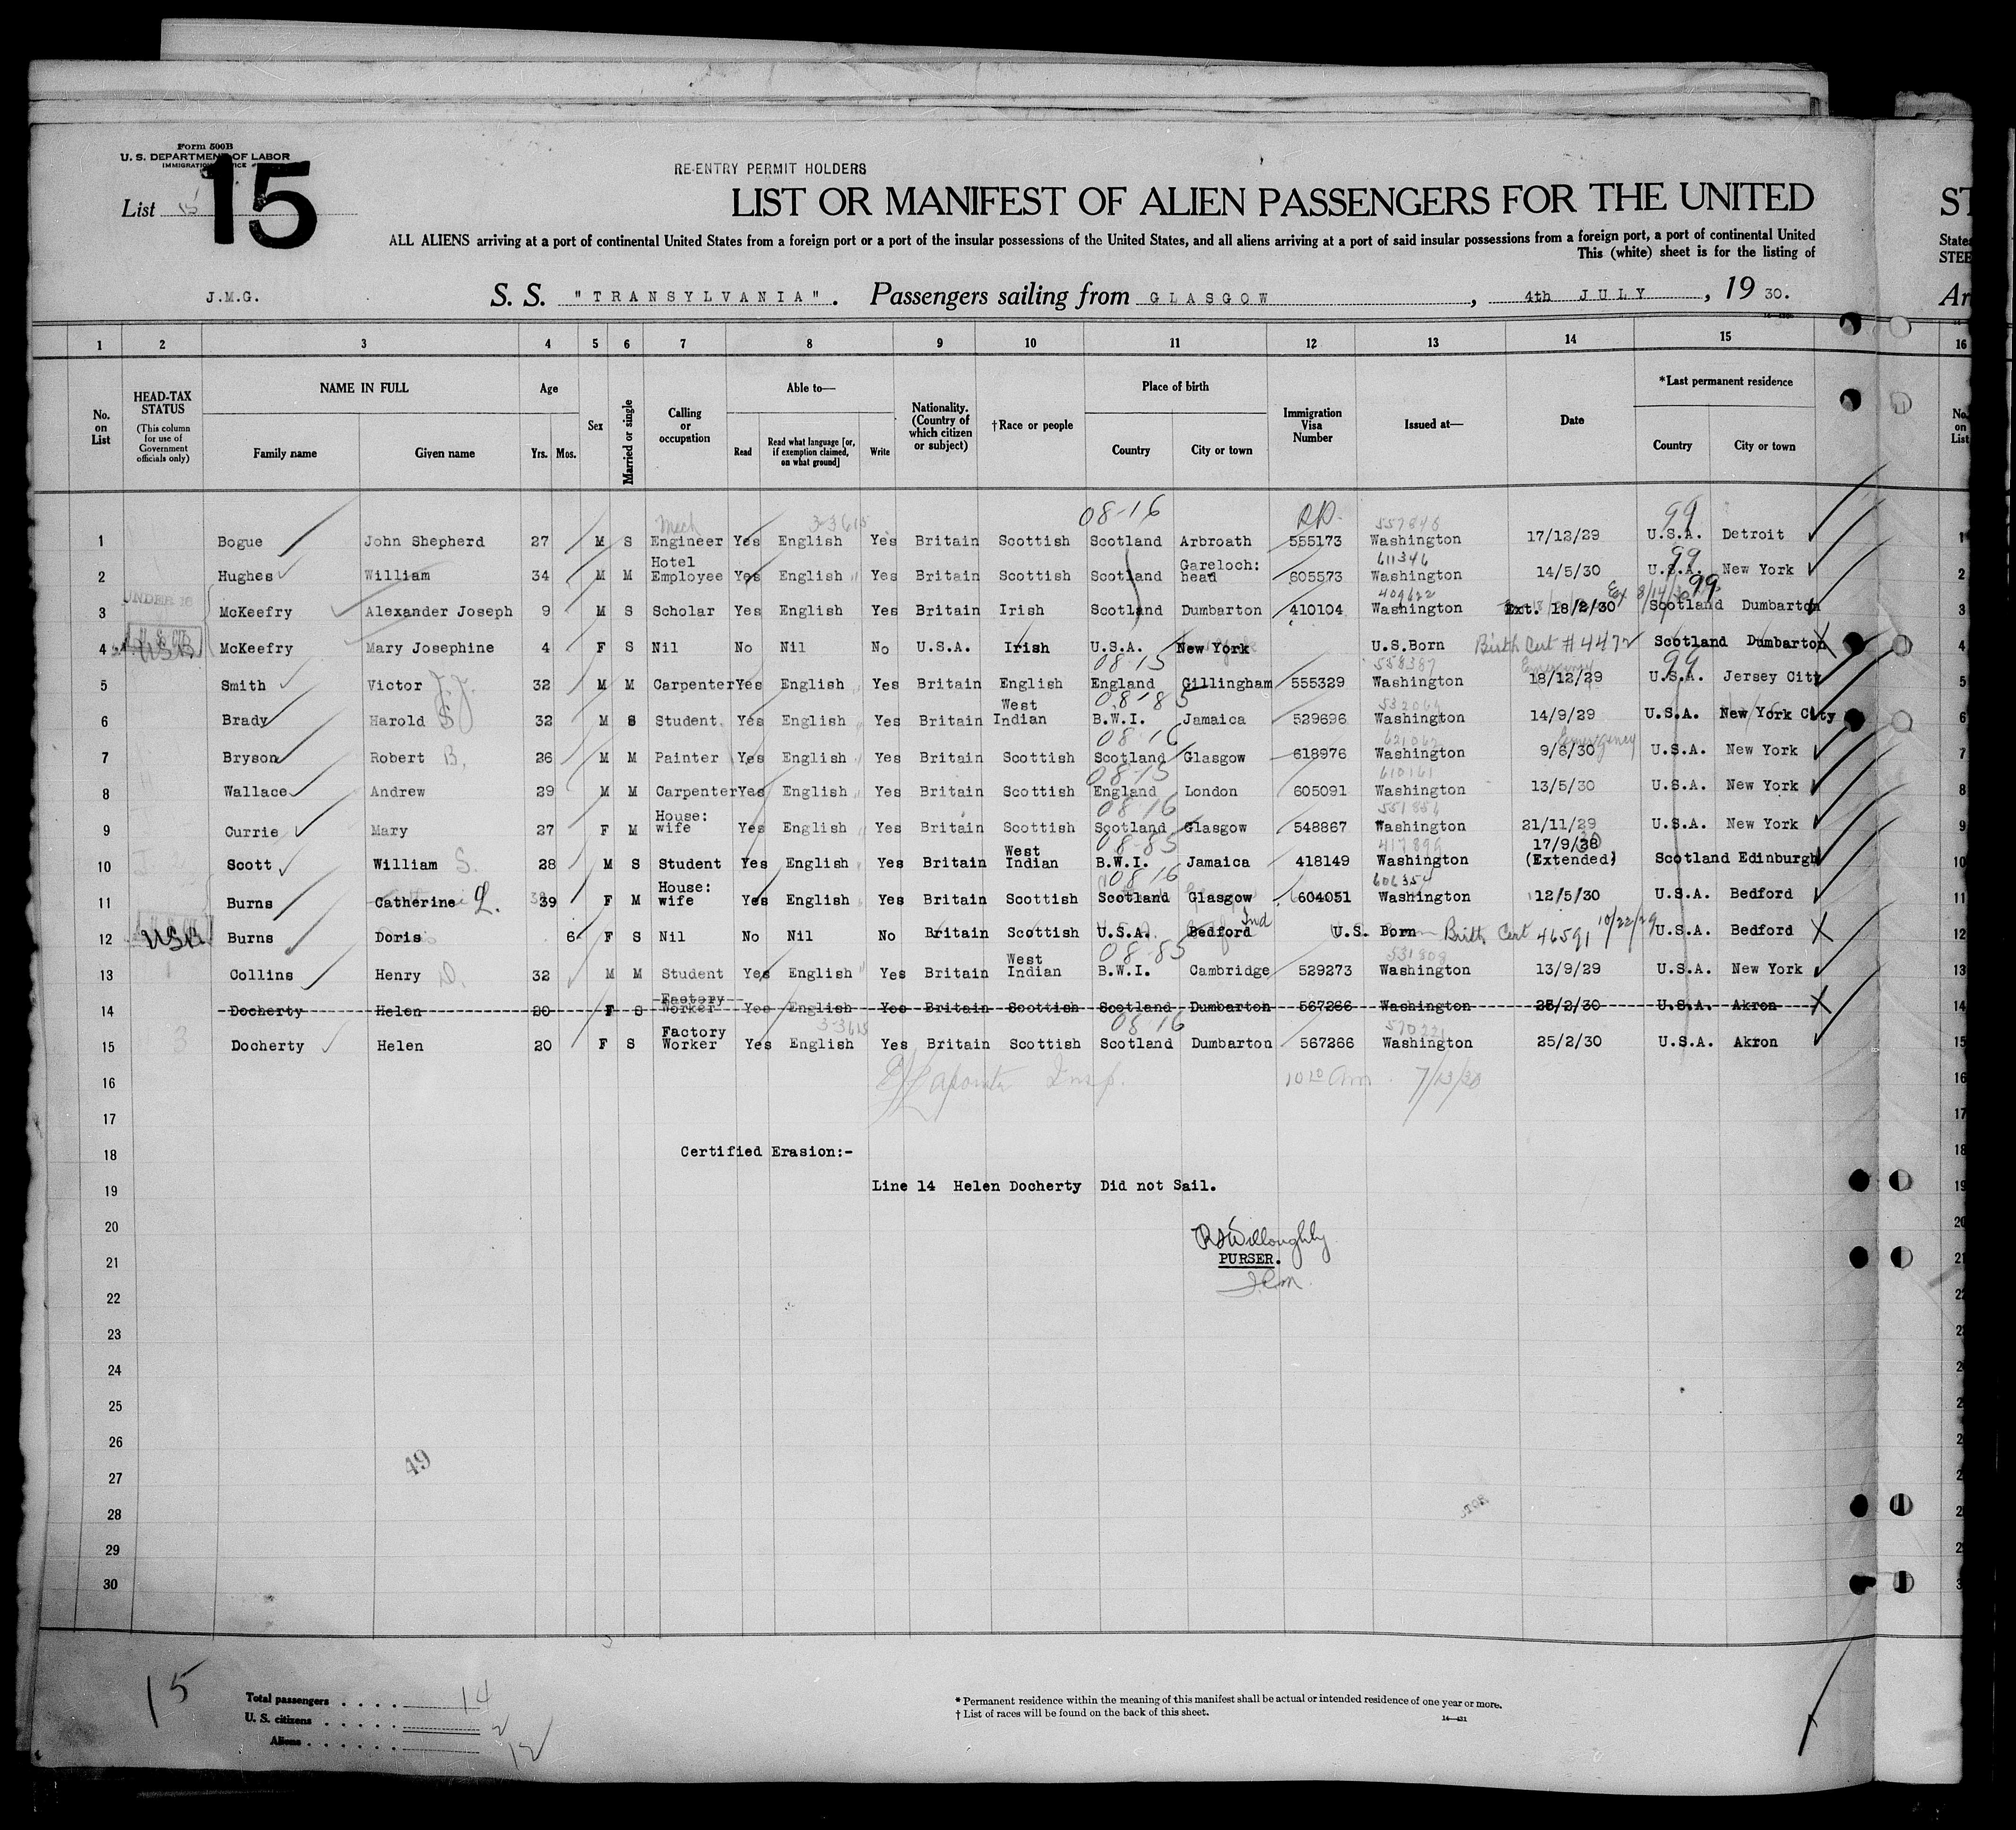 Form 500B
U. S. DEPARTMENT OF LABOR
IMMIGRATION SERVICE
15
List 15
RE-ENTRY PERMIT HOLDERS
LIST OR MANIFEST OF ALIEN PASSENGERS FOR THE UNITED
ST
ALL ALIENS arriving at a port of continental United States from a foreign port or a port of the insular possessions of the United States, and all aliens arriving at a port of said insular possessions from a foreign port, a port of continental United
States
This (white) sheet is for the listing of
STEE
J.M.G.
S. S. "TRANSYLVANIA". Passengers sailing from GLASGOW, 4th JULY, 1930.
Ar
1 2 3 4 5 6 7 8 9 10 11 12 13 14 15 16
No. on List
HEAD-TAX STATUS (This column for use of Government officials only)
NAME IN FULL
Family name Given name
Age
Yrs. Mos.
Sex
Married or single
Calling or occupation
Able to—
Read Read what language [or, if exemption claimed, on what ground] Write
Nationality. (Country of which citizen or subject)
†Race or people
Place of birth
Country City or town
Immigration Visa Number
Issued at—
Date
*Last permanent residence
Country City or town
No. on List
08-16 RP. 557848 99
Mech 3-3615
1 Bogue John Shepherd 27 M S Engineer Yes English Yes Britain Scottish Scotland Arbroath 555173 Washington 17/12/29 U.S.A. Detroit 1
611346 99
2 Hughes William 34 M M Hotel Employee Yes English Yes Britain Scottish Scotland Gareloch: head 605573 Washington 14/5/30 U.S.A. New York 2
UNDER 16 409622 99
3 McKeefry Alexander Joseph 9 M S Scholar Yes English Yes Britain Irish Scotland Dumbarton 410104 Washington Ext. 18/2/30 Scotland Dumbarton 3
4 USB McKeefry Mary Josephine 4 F S Nil No Nil No U.S.A. Irish U.S.A. New York U.S.Born Birth Cert #4472 Scotland Dumbarton 4
08-15 558387 Emergency 99
5 Smith Victor J.J. 32 M M Carpenter Yes English Yes Britain English England Gillingham 555329 Washington 18/12/29 U.S.A. Jersey City 5
08-85
6 Brady Harold S 32 M S Student. Yes English Yes Britain West Indian B.W.I. Jamaica 529696 Washington 14/9/29 U.S.A. New York City 6
08-16 Emergency
7 Bryson Robert B. 26 M M Painter Yes English Yes Britain Scottish Scotland Glasgow 618976 Washington 9/6/30 U.S.A. New York 7
08-15 610161
8 Wallace Andrew 29 M M Carpenter Yes English Yes Britain Scottish England London 605091 Washington 13/5/30 U.S.A. New York 8
08-16 551854
9 Currie Mary 27 F M House: wife Yes English Yes Britain Scottish Scotland Glasgow 548867 Washington 21/11/29 U.S.A. New York 9
08-85 417899
10 Scott William S. 28 M S Student Yes English Yes Britain West Indian B.W.I. Jamaica 418149 Washington 17/9/30 (Extended) Scotland Edinburgh 10
08 16 606354
11 Burns Catherine L. 39 F M House: wife Yes English Yes Britain Scottish Scotland Glasgow 604051 Washington 12/5/30 U.S.A. Bedford 11
12 USB Burns Doris 6 F S Nil No Nil No Britain Scottish U.S.A. Bedford Ind U.S. Born Birth Cert 46591 10/22/29 U.S.A. Bedford 12
08-85 531808
13 Collins Henry D. 32 M M Student Yes English Yes Britain West Indian B.W.I. Cambridge 529273 Washington 13/9/29 U.S.A. New York 13
14 Docherty Helen 20 F S Factory Worker Yes English Yes Britain Scottish Scotland Dumbarton 567266 Washington 25/2/30 U.S.A. Akron 14
3-3615 08-16 570221
15 Docherty Helen 20 F S Factory Worker Yes English Yes Britain Scottish Scotland Dumbarton 567266 Washington 25/2/30 U.S.A. Akron 15
16 Lapointe Insp. 10 10 am. 7/13/30 16
17 17
18 Certified Erasion:- 18
19 Line 14 Helen Docherty Did not Sail. 19
20 20
R Willoughby
21 PURSER. 21
22
23
24
25
26
27 49
28
29
30
15
Total passengers . . . . 14
U. S. citizens . . . . . 2
Aliens . . . . . . 12
* Permanent residence within the meaning of this manifest shall be actual or intended residence of one year or more.
† List of races will be found on the back of this sheet.